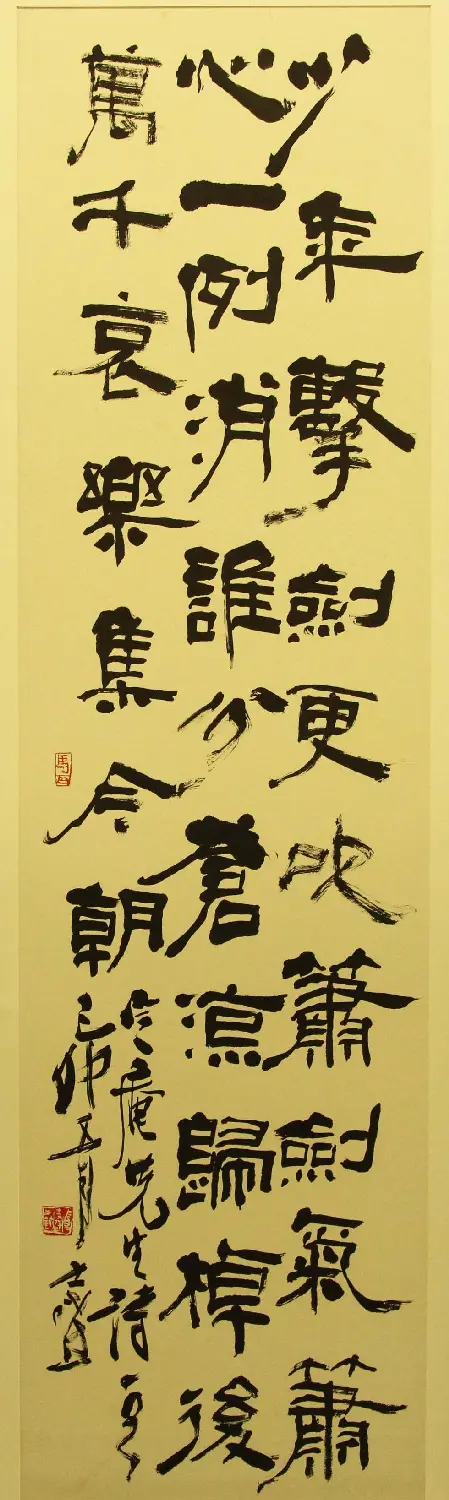 少年擊劍更吹簫劍氣簫
心一例消誰分蒼涼歸棹後
萬千哀樂集今朝
定庵先生詩一首
己卯五月